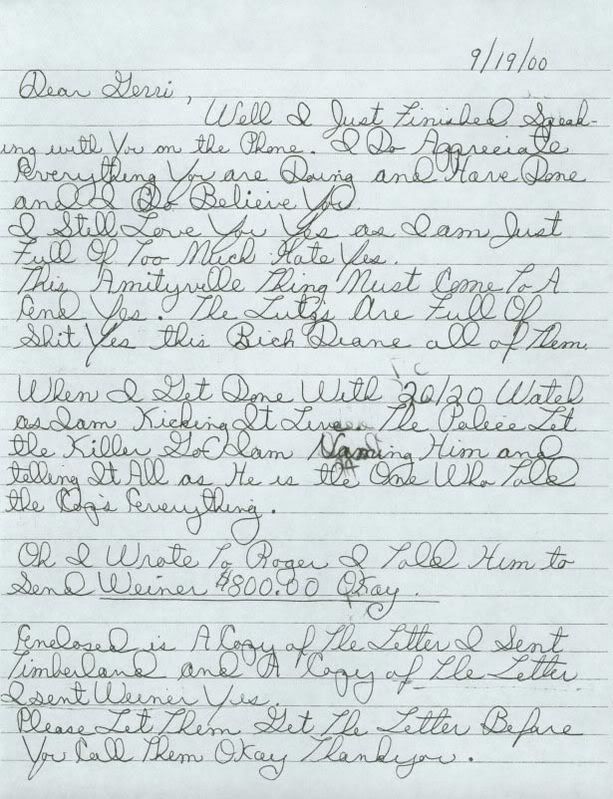 9/19/00
Dear Gerri,
Well I Just Finished Speak-
ing with You on the Phone. I Do Appreciate
Everything You are Doing and Have Done
and I Do Believe You
I Still Love You Yes as I am Just
Full Of Too Much Hate Yes.
This Amityville Thing Must Come To A
End Yes. The Lutzs Are Full Of
Shit Yes this Bich Diane all of Them.
When I Get Done With 20/20 Watch
as I am Kicking It Live The Police Let
the Killer Go I am Naming Him and
telling It All as He is the One Who Told
the Cops Everything.
Oh I Wrote To Roger I Told Him to
Send Weiner $800.00 Okay.
Enclosed is A Copy of The Letter I Sent
Timberland and A Copy of The Letter
I sent Weiner Yes.
Please Let Them Get The Letter Before
You Call Them Okay Thankyou.